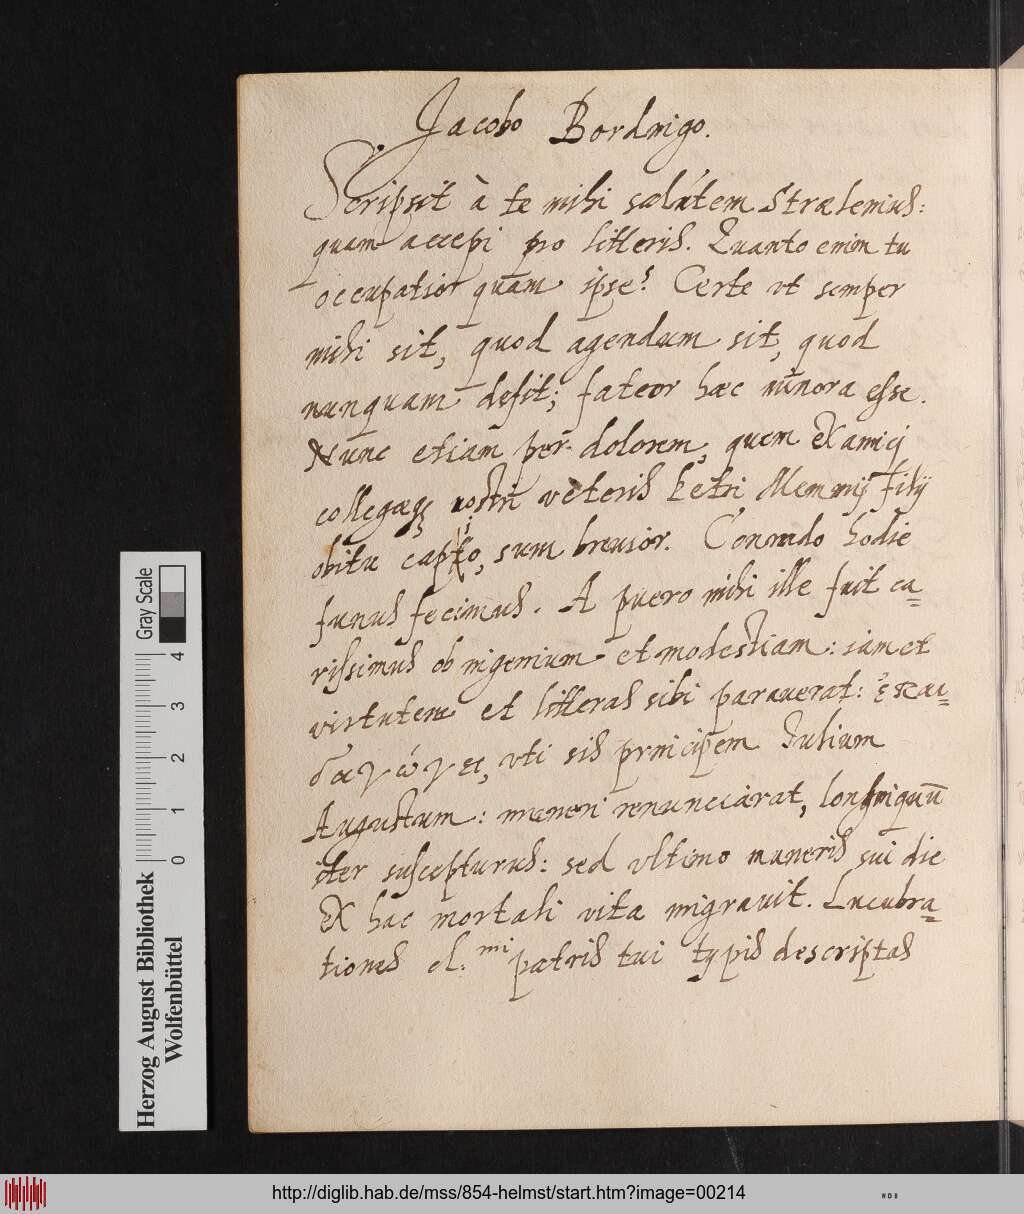 Jacobo Bordingo.
Scripsit à te mihi salutem Stralenius:
quam accepi pro litteris. Quanto enim tu
occupatior quam ipse? Certe vt semper
mihi sit, quod agendum sit, quod
nunquam desit; fateor hæc minora esse.
Nunc etiam per dolorem, quem ex amici
collegæq; nostri veteris Petri Memmij filij
obitu capio, sum breuior. Conrado hodie
funus fecimus. A puero mihi ille fuit ca=
rissimus ob ingenium et modestiam: iam et
virtutem et litteras sibi parauerat:
vti sis principem Iulium
Augustum: muneri renunciarat, longinquū
iter suscepturus: sed vltimo muneris sui die
ex hac mortali vita migrauit. Lucubra=
tiones cl.mi patris tui typis descriptas
Herzog August Bibliothek
Wolfenbüttel
Gray Scale
0 1 2 3 4
http://diglib.hab.de/mss/854-helmst/start.htm?image=00214
WDB